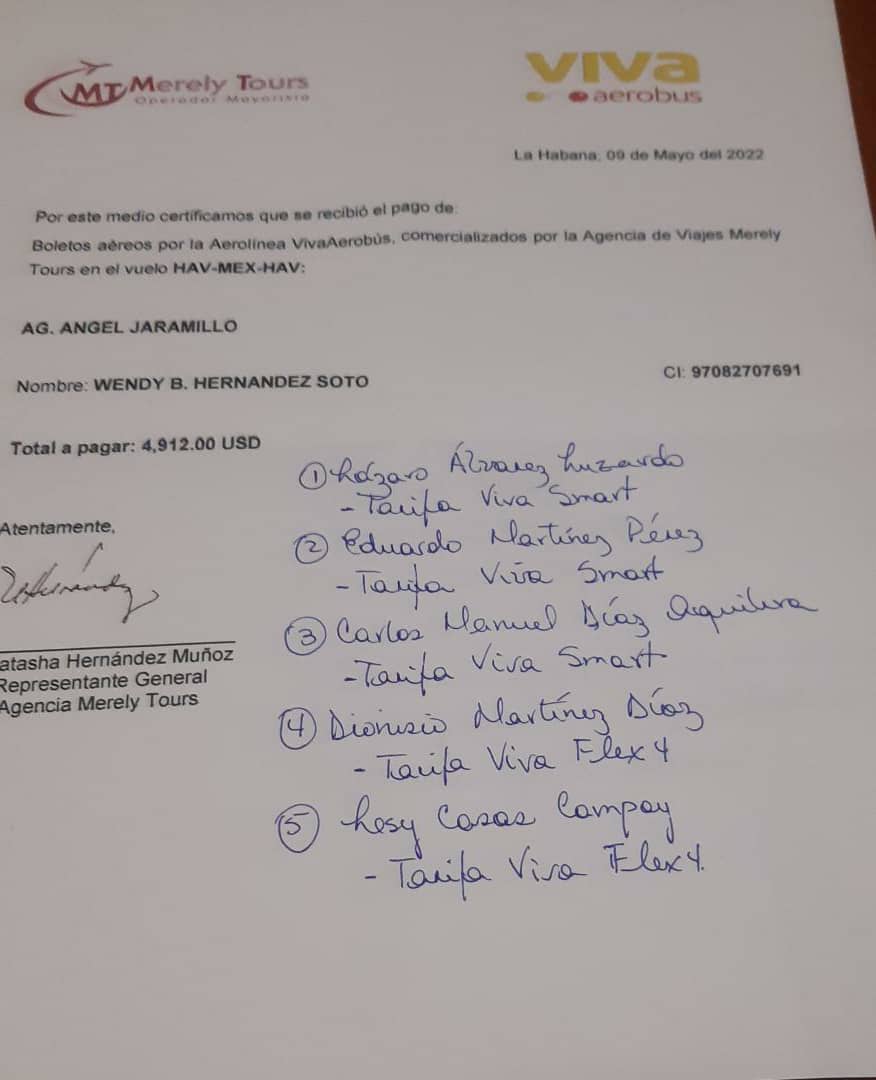 MT Merely Tours
Operador Mayorista
VIVA
aerobus
La Habana; 09 de Mayo del 2022
Por este medio certificamos que se recibió el pago de:
Boletos aéreos por la Aerolínea VivaAerobús, comercializados por la Agencia de Viajes Merely
Tours en el vuelo HAV-MEX-HAV:
AG. ANGEL JARAMILLO
Nombre: WENDY B. HERNANDEZ SOTO
CI: 97082707691
Total a pagar: 4,912.00 USD
Atentamente,
atasha Hernández Muñoz
Representante General
Agencia Merely Tours
① Lázaro Álvarez Luzardo
- Tarifa Viva Smart
② Eduardo Martínez Pérez
- Tarifa Viva Smart
③ Carlos Manuel Díaz Aquilera
- Tarifa Viva Smart
④ Dionisio Martínez Díaz
- Tarifa Viva Flex 4
⑤ Lesy Casas Campoy
- Tarifa Viva Flex 4.